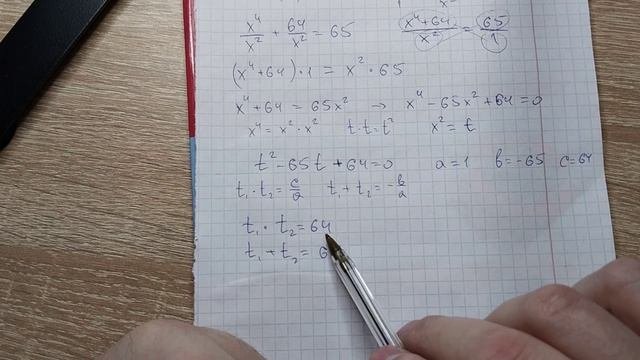 x⁴/x² + 64/x² = 65 (x⁴+64)/x² = 65/1
(x⁴+64)·1 = x²·65
x⁴+64 = 65x² → x⁴-65x²+64=0
x⁴ = x²·x² t·t=t² x² = t
t²-65t+64=0 a=1 b=-65 c=64
t₁·t₂=c/a t₁+t₂=-b/a
t₁·t₂=64
t₁+t₂= 6